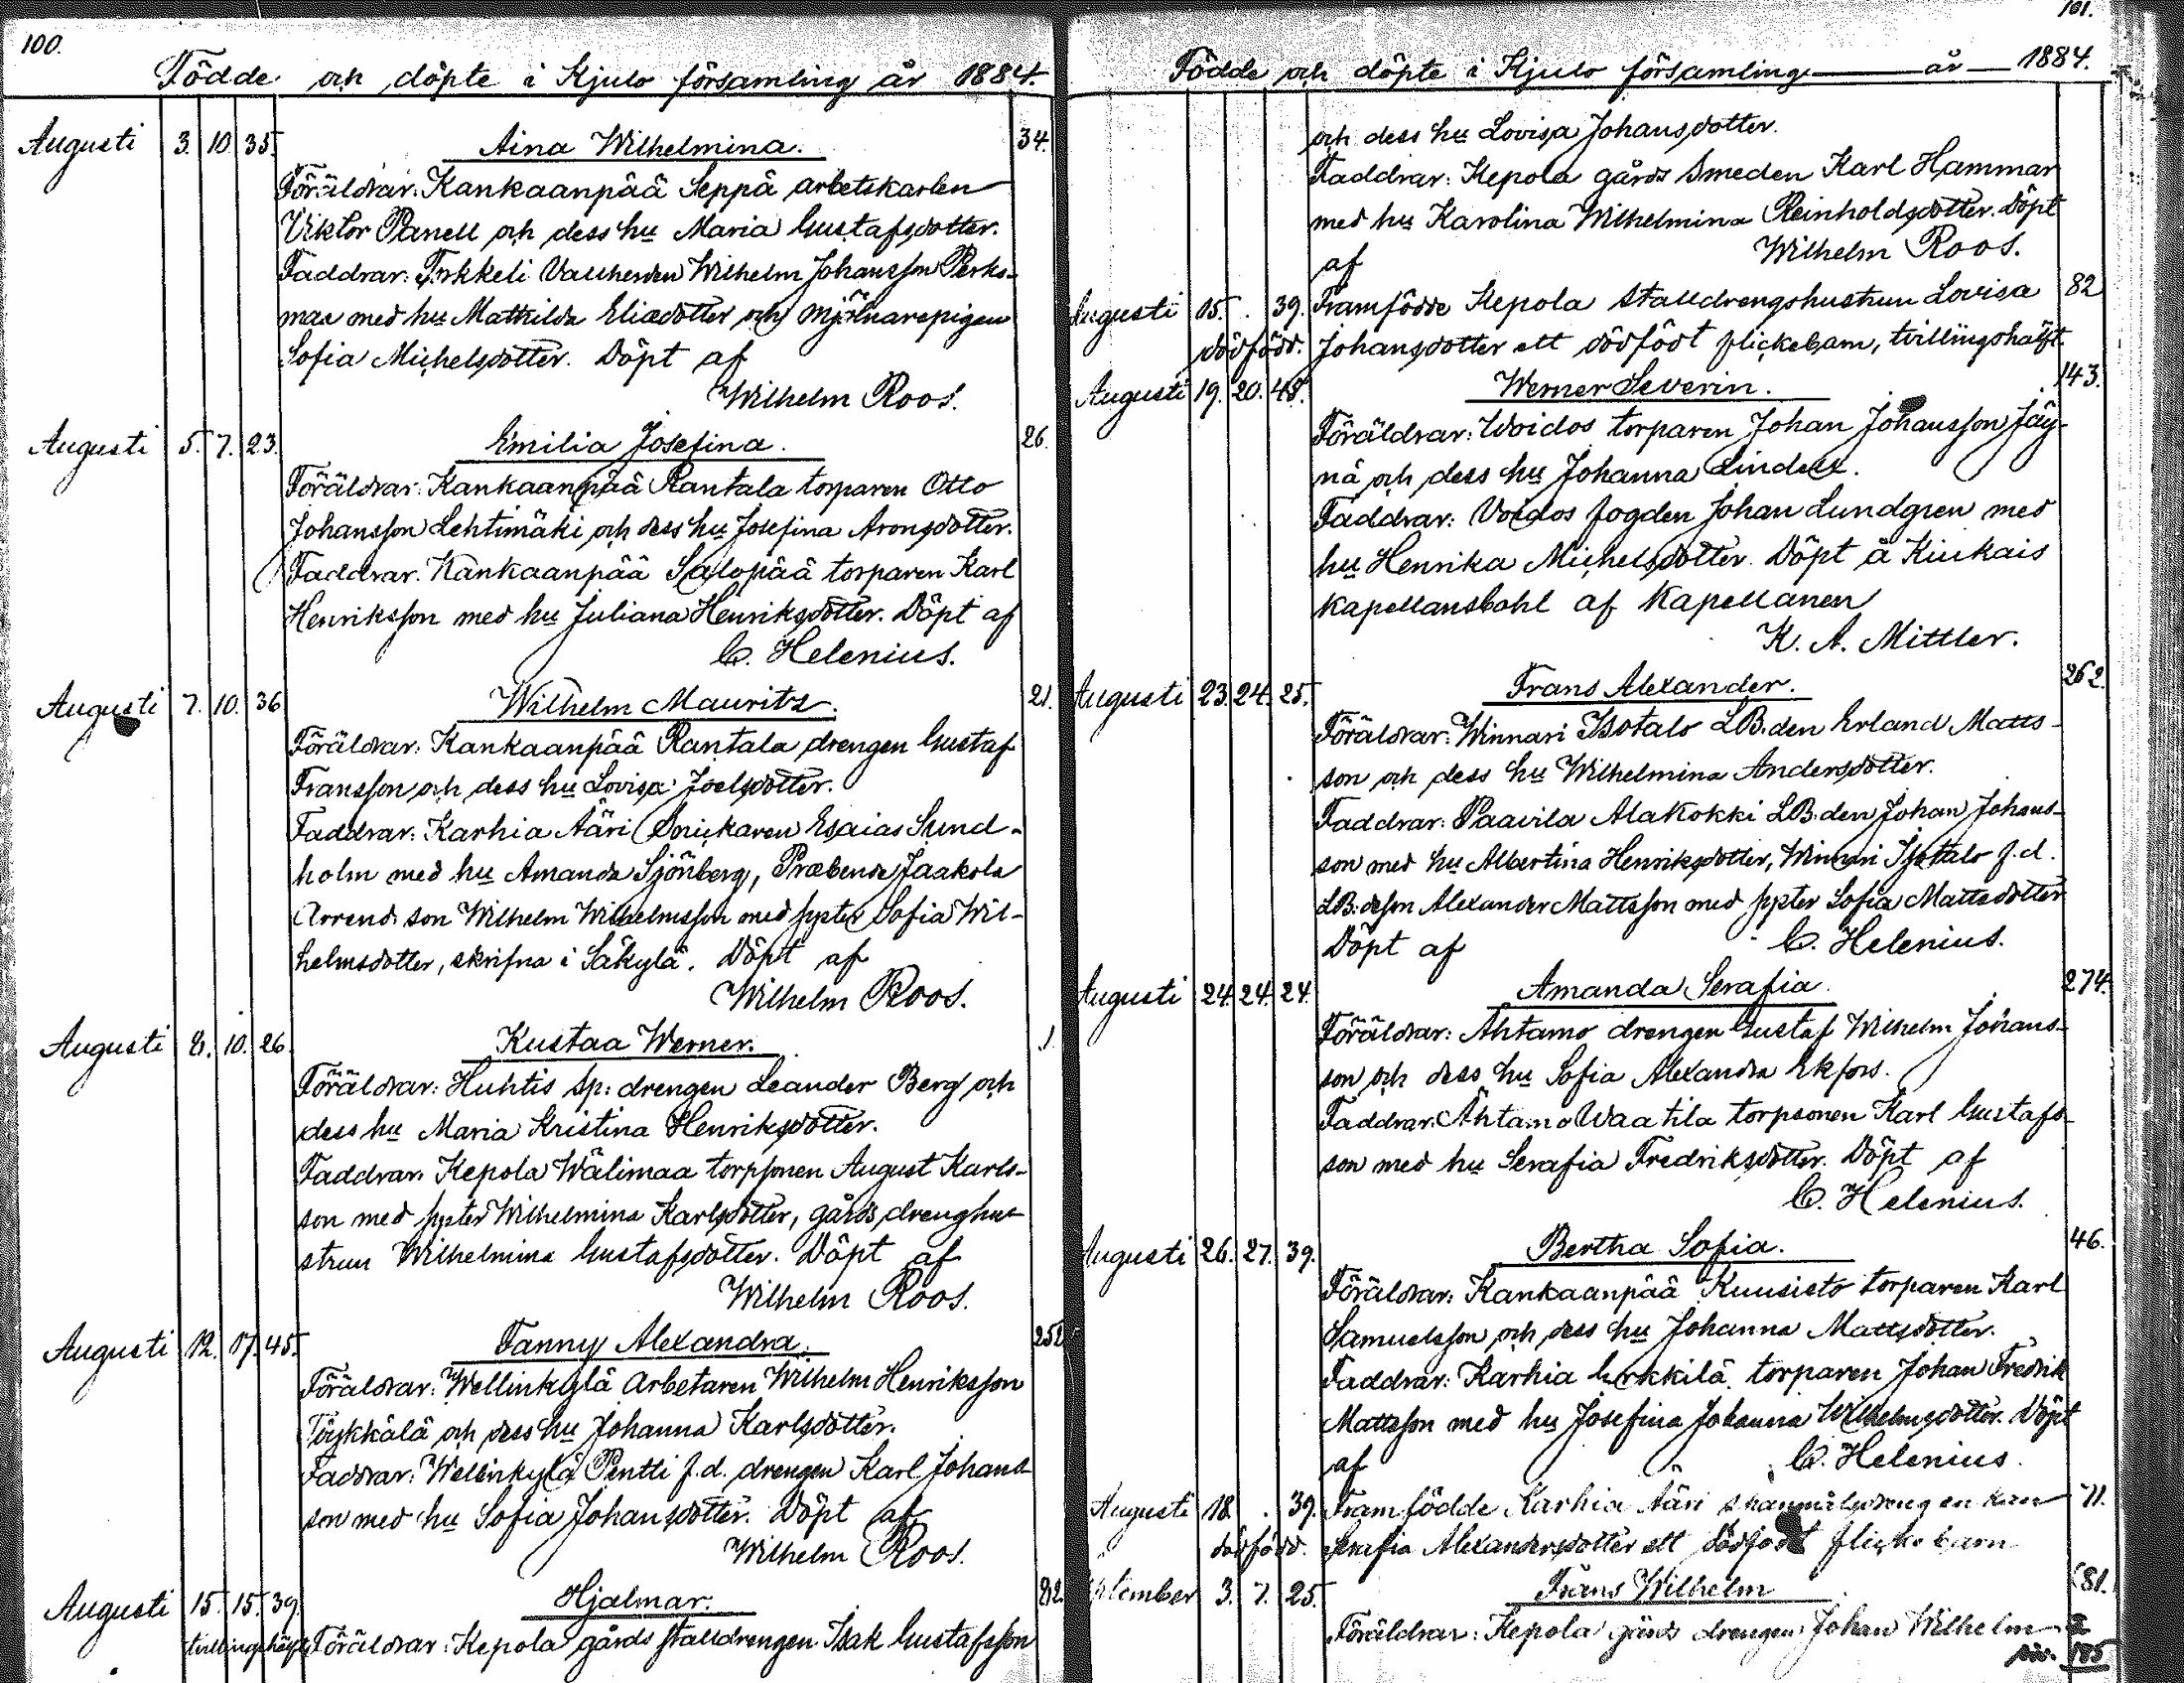 100.
Födde och döpte i Kjulo församling år 1884.
Augusti 3. 10. 35. Aina Wilhelmina. 34.
Föräldrar: Kankaanpää Seppä arbetskarlen
Viktor Panell och dess hu Maria Gustafsdotter.
Faddrar: Wilhelm Johansson Perko-
maa med hu Mathilda Eliædotter och Mjölnarepigan
Sofia Michelsdotter. Döpt af
Wilhelm Roos.
Augusti 5. 7. 23. Emilia Josefina. 26.
Föräldrar: Kankaanpää Rantala torparen Otto
Johansson Lehtimäki och dess hu Josefina Aronsdotter.
Faddrar. Kankaanpää Salopää torparen Karl
Henriksson med hu Juliana Henriksdotter. Döpt af
C. Helenius.
Augusti 7. 10. 36 Wilhelm Mauritz. 21.
Föräldrar: Kankaanpää Rantala drengen Gustaf
Fransson och dess hu Lovisa Joelsdotter.
Faddrar: Karhia Ääri Snickaren Esaias Sund-
holm med hu Amanda Sjönberg, Præbende Jaakola
Arrend. son Wilhelm Wilhelmsson med syster Sofia Wil-
helmsdotter, skrifna i Säkylä. Döpt af
Wilhelm Roos.
Augusti 8. 10. 26. Kustaa Werner. 1.
Föräldrar: Huhtis Sp: drengen Leander Berg och
dess hu Maria Kristina Henriksdotter.
Faddrar. Kepola Wälimaa torpsonen August Karls-
son med syster Wilhelmina Karlsdotter, gårds drenghu-
strun Wilhelmina Gustafsdotter. Döpt af
Wilhelm Roos.
Augusti 12. 17. 45. Fanny Alexandra. 252
Föräldrar: Wellinkylä Arbetaren Wilhelm Henriksson
Töykkälä och dess hu Johanna Karlsdotter.
Faddrar: Wellinkylä Pentti f.d. drengen Karl Johans-
son med hu Sofia Johansdotter. Döpt af
Wilhelm Roos.
Augusti 15. 15. 39. Hjalmar. 82.
tvillingshälft Föräldrar: Kepola gårds stalldrengen Isak Gustafsson
101.
Födde och döpte i Kjulo församling år 1884.
och dess hu Lovisa Johansdotter.
Faddrar: Kepola gårds Smeden Karl Hammar
med hu Karolina Wilhelmina Reinholdsdotter. Döpt
af Wilhelm Roos.
Augusti 15. . 39. Framfödde Kepola Stalldrengshustrun Lovisa 82
dödfödd. Johansdotter ett dödfödt flickebarn, tvillingshälft.
Augusti 19. 20. 48. Werner Severin. 143.
Föräldrar: Woidos torparen Johan Johansson Jäy-
nä och dess hu Johanna Lindell.
Faddrar: Voidos fogden Johan Lundgren med
hu Henrika Michelsdotter. Döpt å Kiukais
Kapellansbohl af Kapellanen
K. A. Mittler.
Augusti 23. 24. 25. Frans Alexander. 262.
Föräldrar: Winnari Isotalo LB:den Erland Matts-
son och dess hu Wilhelmina Andersdotter.
Faddrar: Paavila Alakokki LB:den Johan Johans-
son med hu Albertina Henriksdotter, Winnari Isotalo f.d.
LB:dsson Alexander Mattsson med syster Sofia Mattsdotter
Döpt af C. Helenius.
Augusti 24. 24. 24. Amanda Serafia. 274.
Föräldrar: Ahtamo drengen Gustaf Wilhelm Johans-
son och dess hu Sofia Alexandra Ekfors.
Faddrar. Ahtamo Waatila torpsonen Karl Gustafs-
son med hu Serafia Fredriksdotter. Döpt af
C. Helenius.
Augusti 26. 27. 39. Bertha Sofia. 46.
Föräldrar: Kankaanpää Kuusisto torparen Karl
Samuelsson och dess hu Johanna Mattsdotter.
Faddrar: Karhia torparen Johan Fredrik
Mattsson med hu Josefina Johanna Wilhelmsdotter. Döpt
af C. Helenius.
Augusti 18. . 39. Framfödde Karhia Ääri 71.
dödfödd. Serafia Alexandersdotter ett dödfödt flickebarn
September 3. 7. 25. Frans Wilhelm 81.
Föräldrar: Kepola gårds drengen Johan Wilhelm
185